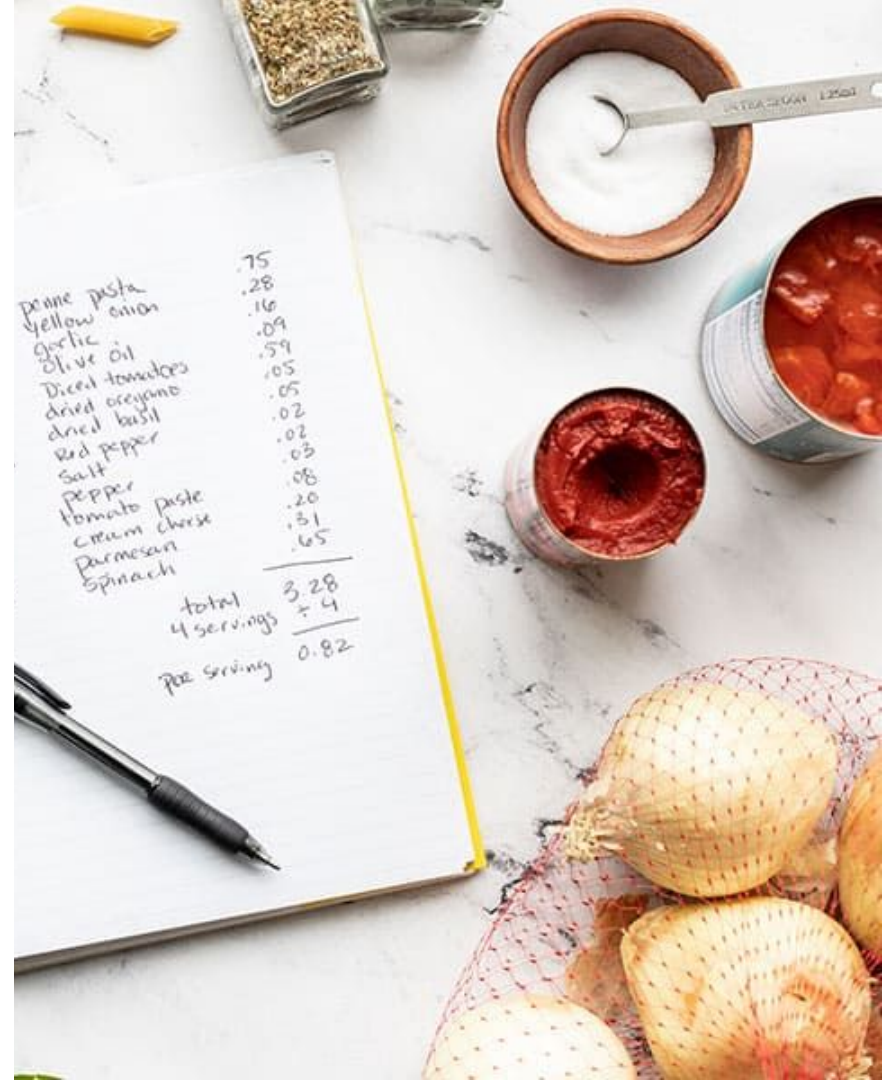 penne pasta .75
yellow onion .28
garlic .16
olive oil .09
Diced tomatoes .59
dried oregano .05
dried basil .05
Red pepper .02
salt .02
pepper .03
tomato paste .08
cream cheese .20
parmesan .31
spinach .65
total 3.28
4 servings ÷ 4
per serving 0.82
1.25ml